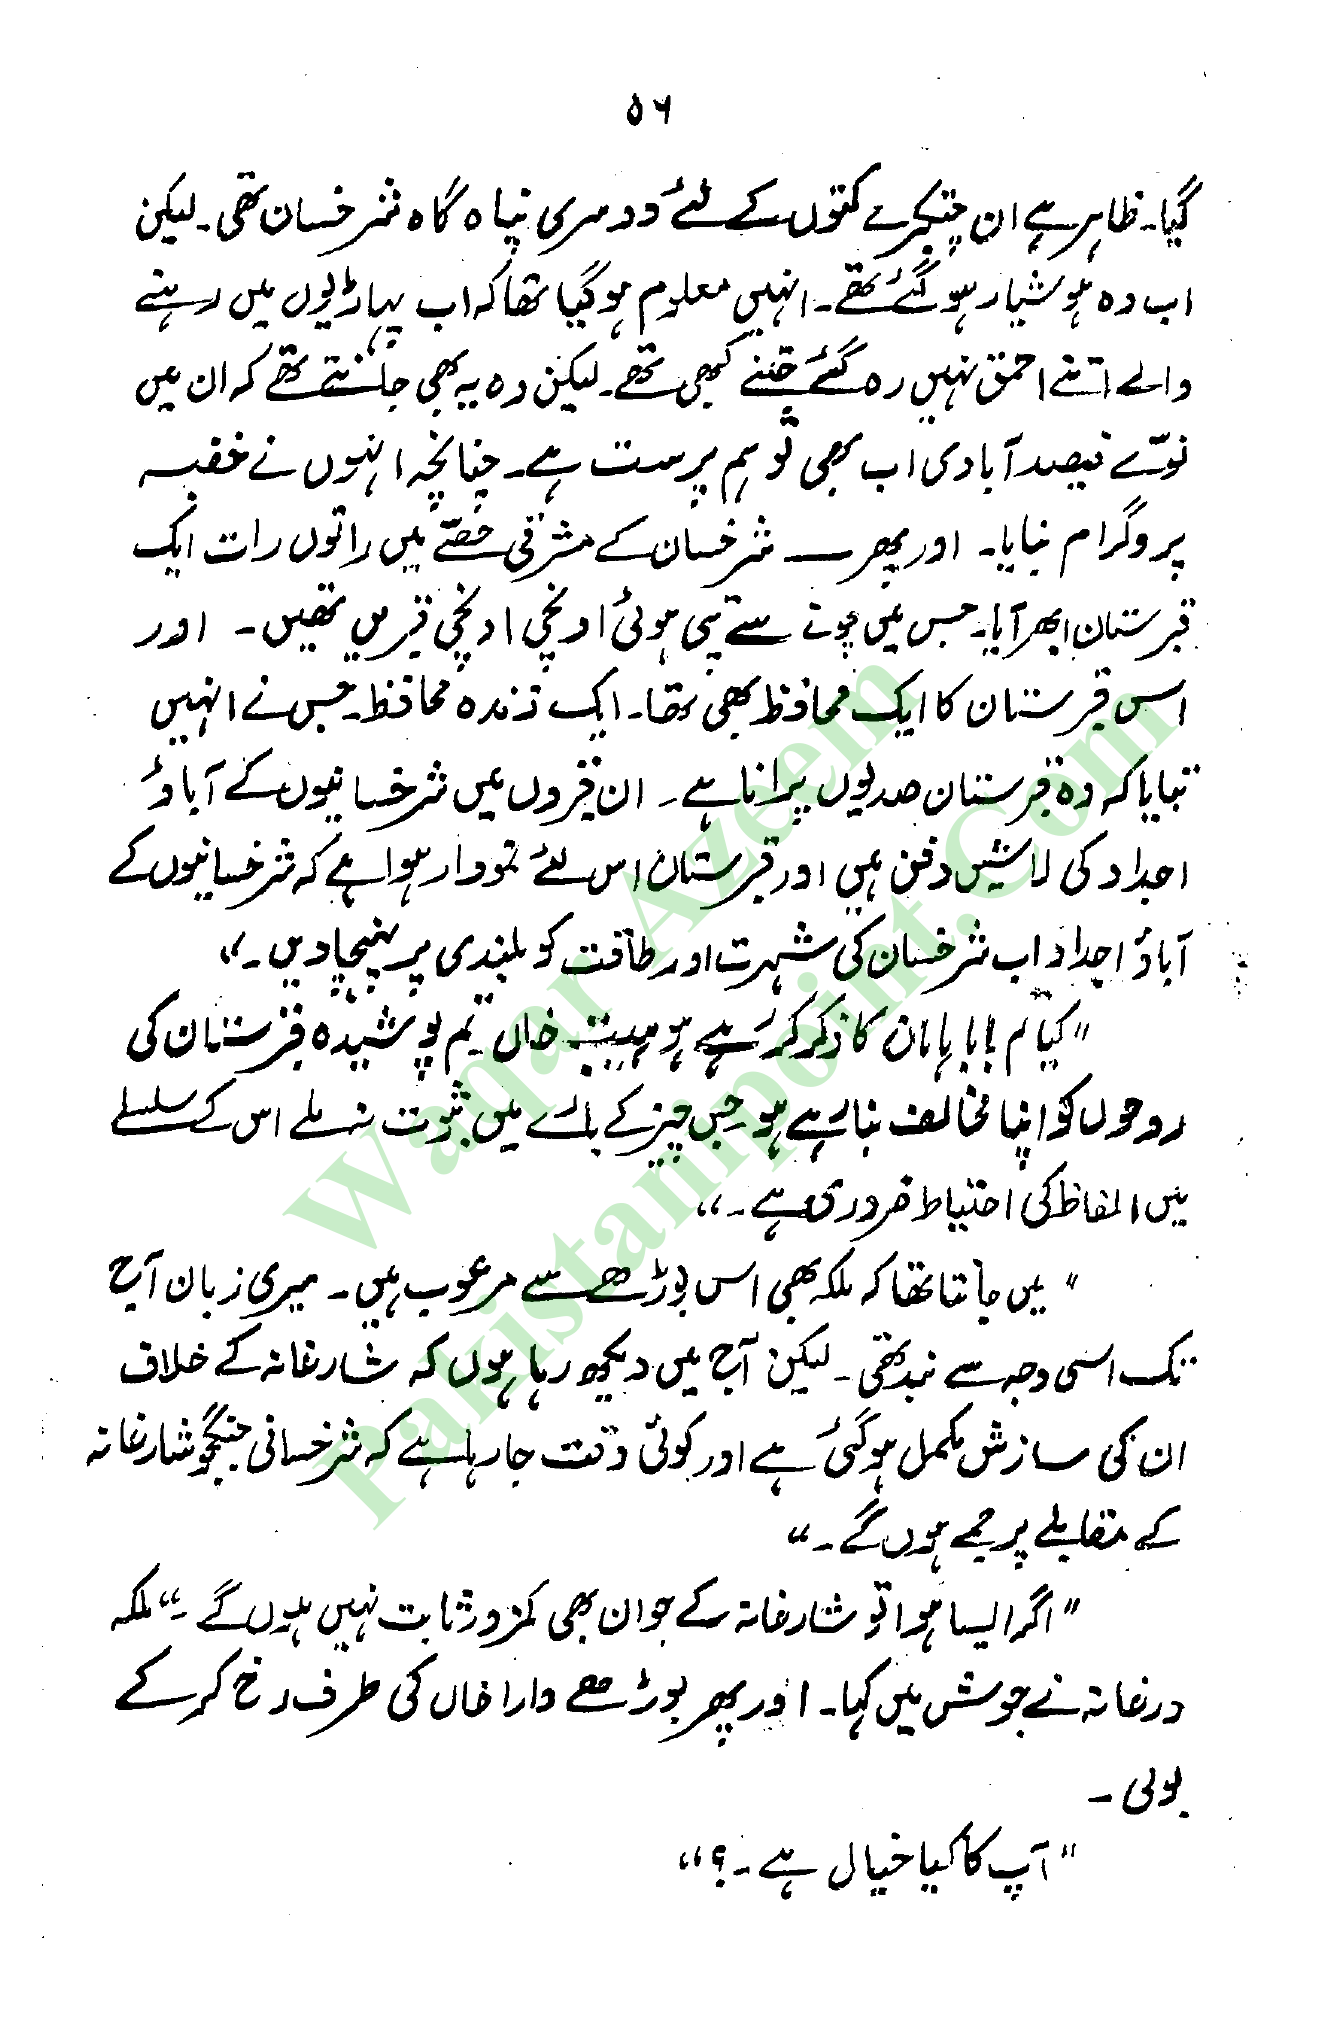 ۵۶
گیا۔ ظاہر ہے ان چتکبرے کتوں کے لئے دوسری پناہ گاہ شرخسان تھی۔ لیکن
اب وہ ہوشیار ہو گئے تھے۔ انہیں معلوم ہو گیا تھا کہ اب پہاڑیوں میں رہنے
والے اتنے احمق نہیں رہ گئے جتنے کبھی تھے۔ لیکن وہ یہ بھی جانتے تھے کہ ان میں
نوّے فیصد آبادی اب بھی توہم پرست ہے۔ چنانچہ انہوں نے خفیہ
پروگرام بنایا۔ اور پھر — شرخسان کے مشرقی حصّے میں راتوں رات ایک
قبرستان ابھر آیا۔ جس میں چونے سے بنی ہوئی اونچی اونچی قبریں تھیں۔ اور
اس قبرستان کا ایک محافظ بھی تھا۔ ایک زندہ محافظ۔ جس نے انہیں
بتایا کہ وہ قبرستان صدیوں پرانا ہے۔ ان قبروں میں شرخسانیوں کے آباؤ
اجداد کی لاشیں دفن ہیں اور قبرستان اس لئے نمودار ہوا ہے کہ شرخسانیوں کے
آباؤ اجداد اب شرخسان کی شہرت اور طاقت کو بلندی پر پہنچا دیں۔"
"کیا تم بابا ہامان کا ذکر کر رہے ہو ہیبت خاں۔ تم پوشیدہ قبرستان کی
روحوں کو اپنا مخالف بنا رہے ہو۔ جس چیز کے بارے میں ثبوت نہ ملے اس کے سلسلے
میں الفاظ کی احتیاط ضروری ہے۔"
"میں جانتا تھا کہ ملکہ بھی اس بوڑھے سے مرعوب ہیں۔ میری زبان آج
تک اسی وجہ سے بند تھی۔ لیکن آج میں دیکھ رہا ہوں کہ شارغانہ کے خلاف
ان کی سازش مکمل ہو گئی ہے اور کوئی وقت جا رہا ہے کہ شرخسانی جنگجو شارغانہ
کے مقابلے پر جمے ہوں گے۔"
"اگر ایسا ہوا تو شارغانہ کے جوان بھی کمزور ثابت نہیں ہوں گے۔" ملکہ
درغانہ نے جوش میں کہا۔ اور پھر بوڑھے دارا خاں کی طرف رخ کر کے
بولی۔
"آپ کا کیا خیال ہے۔؟"
Waqar Azeem
Pakistanipoint.Com